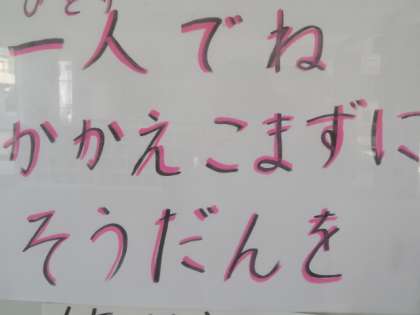 ひとり
一人でね
かかえこまずに
そうだんを